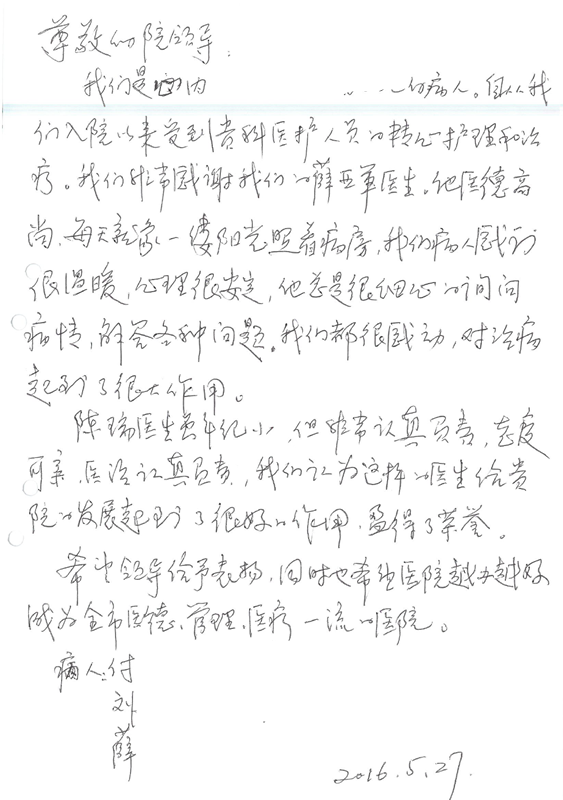 尊敬的院领导:
我们是心内 一位病人。自从我
们入院以来受到贵科医护人员的精心护理和治
疗。我们非常感谢我们的薛亚军医生。他医德高
尚,每天就象一缕阳光照着病房,我们病人感到
很温暖,心理很安定,他总是很细心的询问
病情,解答各种问题。我们都很感动,对治病
起到了很大作用。
陈瑞医生虽年纪小,但非常认真负责,态度
可亲,医治认真负责,我们认为这样的医生给贵
院的发展起到了很好的作用,盈得了荣誉。
希望领导给予表扬,同时也希望医院越办越好
成为全市医德、管理、医疗一流的医院。
病人:付
刘
薛
2016.5.27.